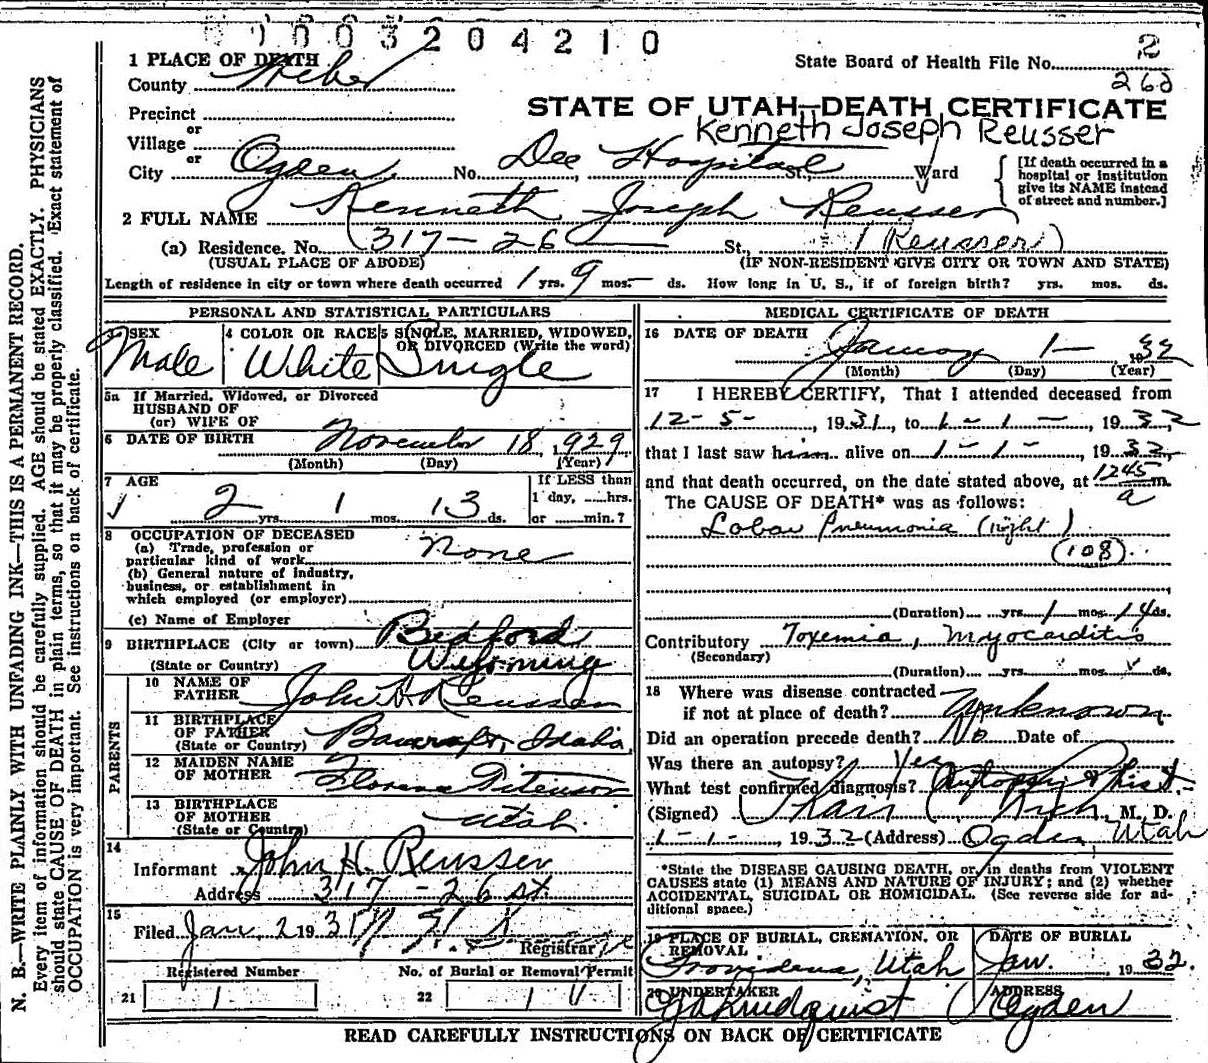 0003204210
1 PLACE OF DEATH
County Weber
State Board of Health File No. 2
260
STATE OF UTAH—DEATH CERTIFICATE
Kenneth Joseph Reusser
Precinct
or
Village
or
City Ogden No. Dee Hospital St., Ward
[If death occurred in a hospital or institution give its NAME instead of street and number.]
2 FULL NAME Kenneth Joseph Reusser
(a) Residence. No. 317-26 St., (Reusser)
(USUAL PLACE OF ABODE) (IF NON-RESIDENT GIVE CITY OR TOWN AND STATE)
Length of residence in city or town where death occurred 1 yrs. 9 mos. – ds. How long in U. S., if of foreign birth? yrs. mos. ds.
PERSONAL AND STATISTICAL PARTICULARS
3 SEX
Male
4 COLOR OR RACE
White
5 SINGLE, MARRIED, WIDOWED,
OR DIVORCED (Write the word)
Single
5a If Married, Widowed, or Divorced
HUSBAND OF
(or) WIFE OF
6 DATE OF BIRTH November 18, 1929
(Month) (Day) (Year)
7 AGE
2 yrs. 1 mos. 13 ds.
If LESS than
1 day, ....hrs.
or ....min.?
8 OCCUPATION OF DECEASED
(a) Trade, profession or
particular kind of work None
(b) General nature of industry,
business, or establishment in
which employed (or employer)
(c) Name of Employer
9 BIRTHPLACE (City or town) Bedford
(State or Country) Wyoming
PARENTS
10 NAME OF
FATHER John H Reusser
11 BIRTHPLACE
OF FATHER
(State or Country) Bancroft, Idaho
12 MAIDEN NAME
OF MOTHER Florence
13 BIRTHPLACE
OF MOTHER
(State or Country) Utah
14
Informant John H. Reusser
Address 317-26 st.
15
Filed Jan. 2 193
Registrar
Registered Number
21 1
No. of Burial or Removal Permit
22 1
MEDICAL CERTIFICATE OF DEATH
16 DATE OF DEATH January 1- 1932
(Month) (Day) (Year)
17 I HEREBY CERTIFY, That I attended deceased from
12-5-, 1931, to 1-1-, 1932
that I last saw him alive on 1-1-, 1932
and that death occurred, on the date stated above, at 1245 a m.
The CAUSE OF DEATH* was as follows:
Lobar Pneumonia (right)
(108)
(Duration) yrs. 1 mos. 14 ds.
Contributory Toxemia, Myocarditis
(Secondary)
(Duration) yrs. mos. ds.
18 Where was disease contracted
if not at place of death? Unknown
Did an operation precede death? No Date of
Was there an autopsy? Yes
What test confirmed diagnosis? Autopsy & Hist
(Signed) Rich M. D.
1-1-1932 (Address) Ogden, Utah
*State the DISEASE CAUSING DEATH, or, in deaths from VIOLENT
CAUSES state (1) MEANS AND NATURE OF INJURY; and (2) whether
ACCIDENTAL, SUICIDAL OR HOMICIDAL. (See reverse side for ad-
ditional space.)
19 PLACE OF BURIAL, CREMATION, OR
REMOVAL
Providence, Utah
DATE OF BURIAL
Jan. , 1932.
20 UNDERTAKER
Lindquist
ADDRESS
Ogden
READ CAREFULLY INSTRUCTIONS ON BACK OF CERTIFICATE
N. B.—WRITE PLAINLY WITH UNFADING INK—THIS IS A PERMANENT RECORD.
Every item of information should be carefully supplied. AGE should be stated EXACTLY. PHYSICIANS
should state CAUSE OF DEATH in plain terms, so that it may be properly classified. Exact statement of
OCCUPATION is very important. See instructions on back of certificate.